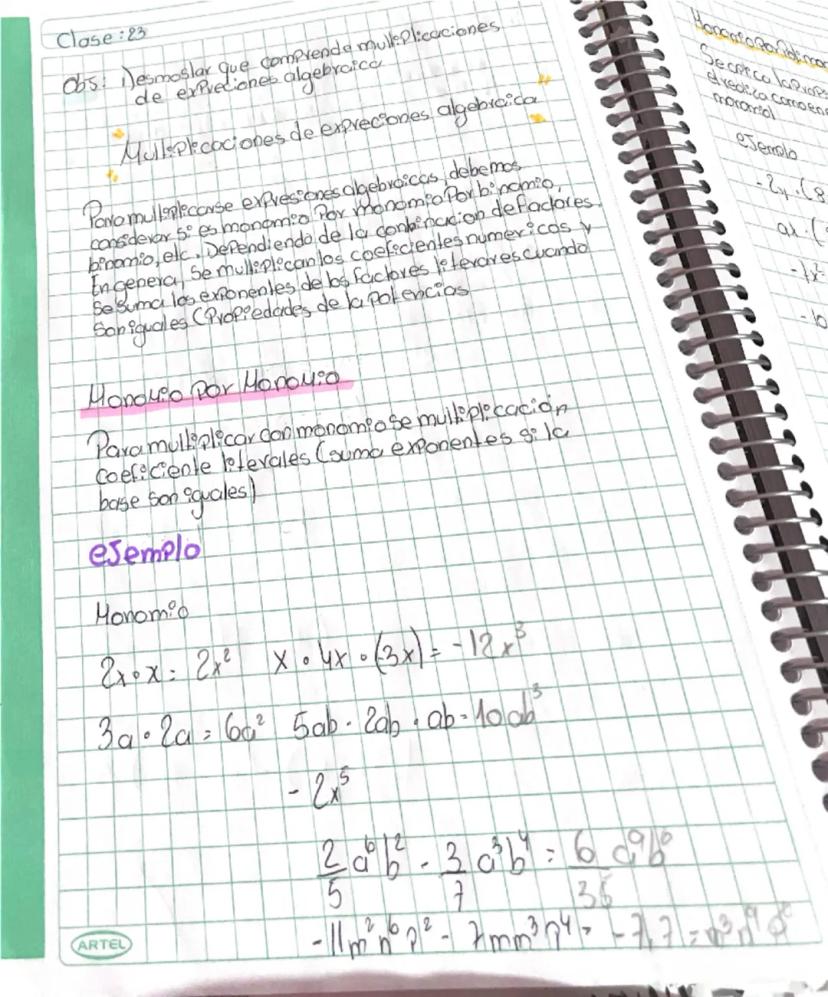 Clase: 23
Obs: Desmoslar que comprende multiplicaciones
de expreciones algebraica
Multiplicaciones de expreciones algebraica
Para multiplicarse expresiones algebraicas debemos
considerar si es monomio por monomio Por binomio,
binomio, etc. Dependiendo de la conbinacion de factores.
En genera, se multiplican los coeficientes numericos y
se suma los exponentes de los factores literares cuando
son iguales (Propiedades de la Potencias
Monomio por Monomio
Para multiplicar con monomio se multiplicación
coeficiente literales (suma exponentes si la
base son iguales)
eJemplo
Monomio
2x • x = 2x² x • 4x • (-3x) = -12x³
3a • 2a = 6a² 5ab • 2ab • ab = 10ab³
- 2x⁵
2/5 a⁶b² - 3/7 a³b⁴ = 6/35 a⁹b⁶
-11m²n⁶p² - 7mn³p⁴ = -7,7 =
ARTEL
Se
monomial
eJemplo